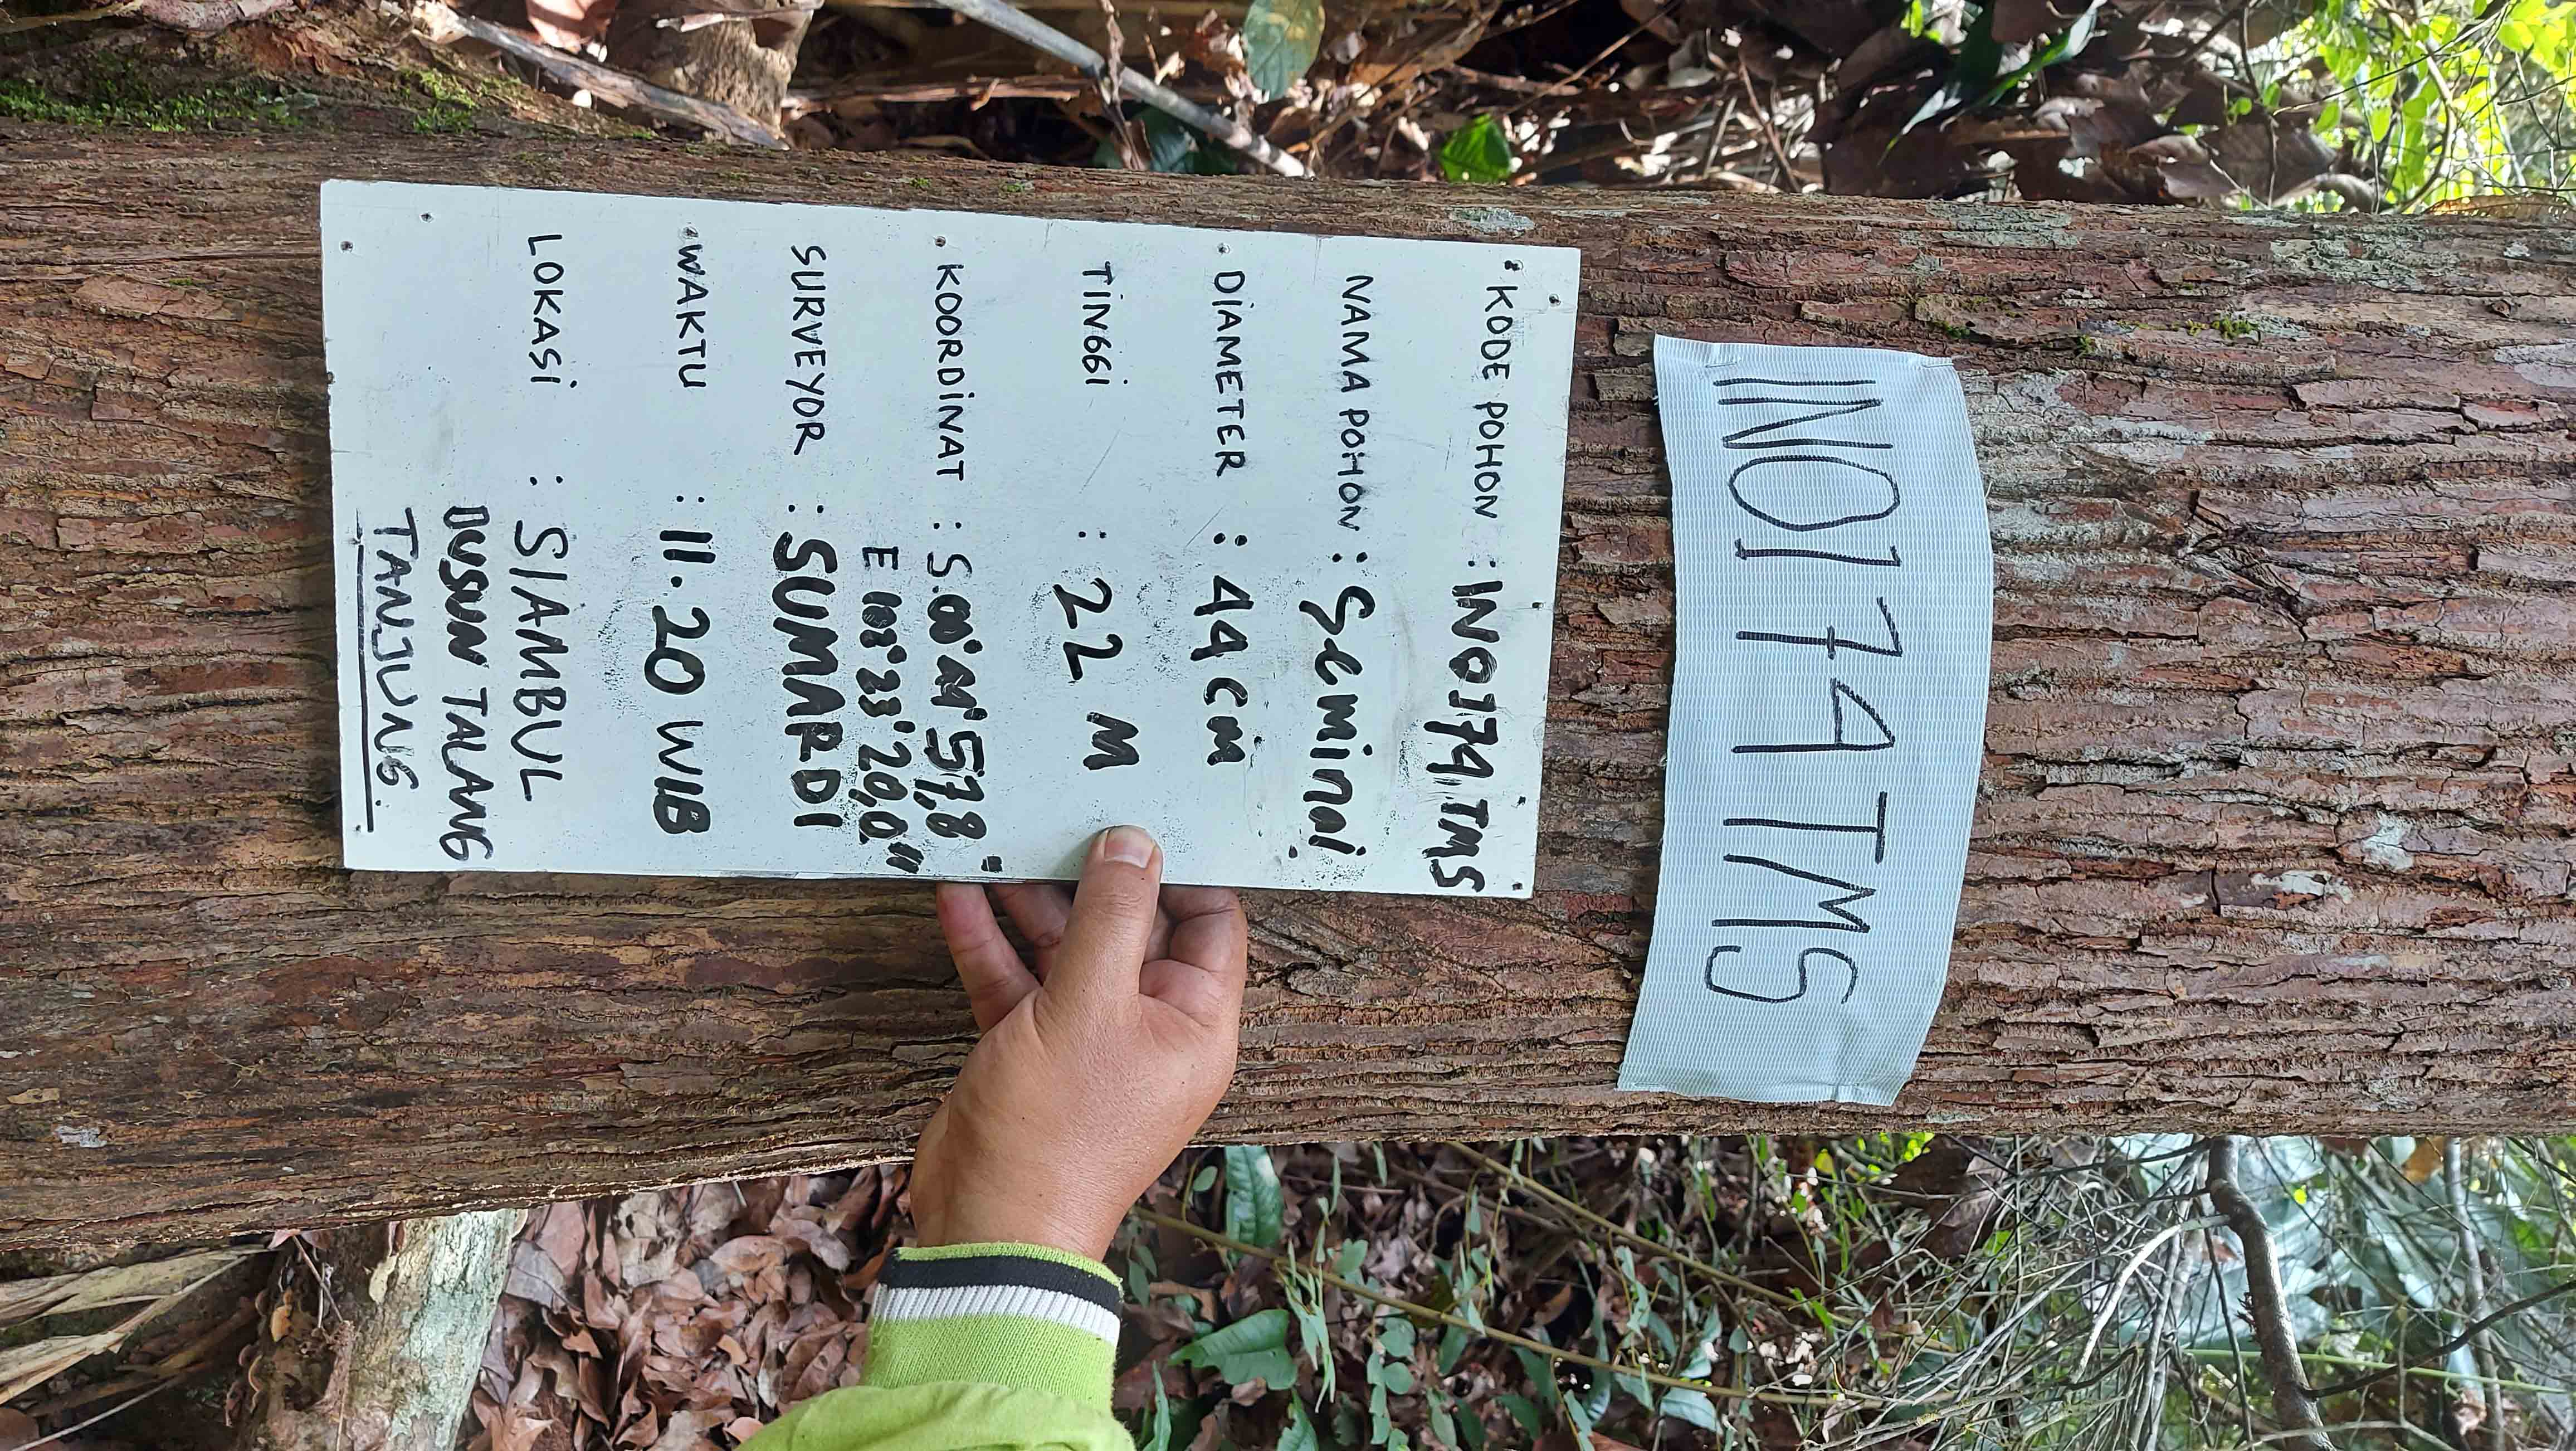 INO174TMS
KODE POHON : INO174TMS
NAMA POHON : Seminai
DIAMETER : 44 cm
TINGGI : 22 M
KOORDINAT : S.00° 57,8"
E 102° 20,0"
SURVEYOR : SUMARDI
WAKTU : 11.20 WIB
LOKASI : SIAMBUL
DUSUN TALANG
TANJUNG.